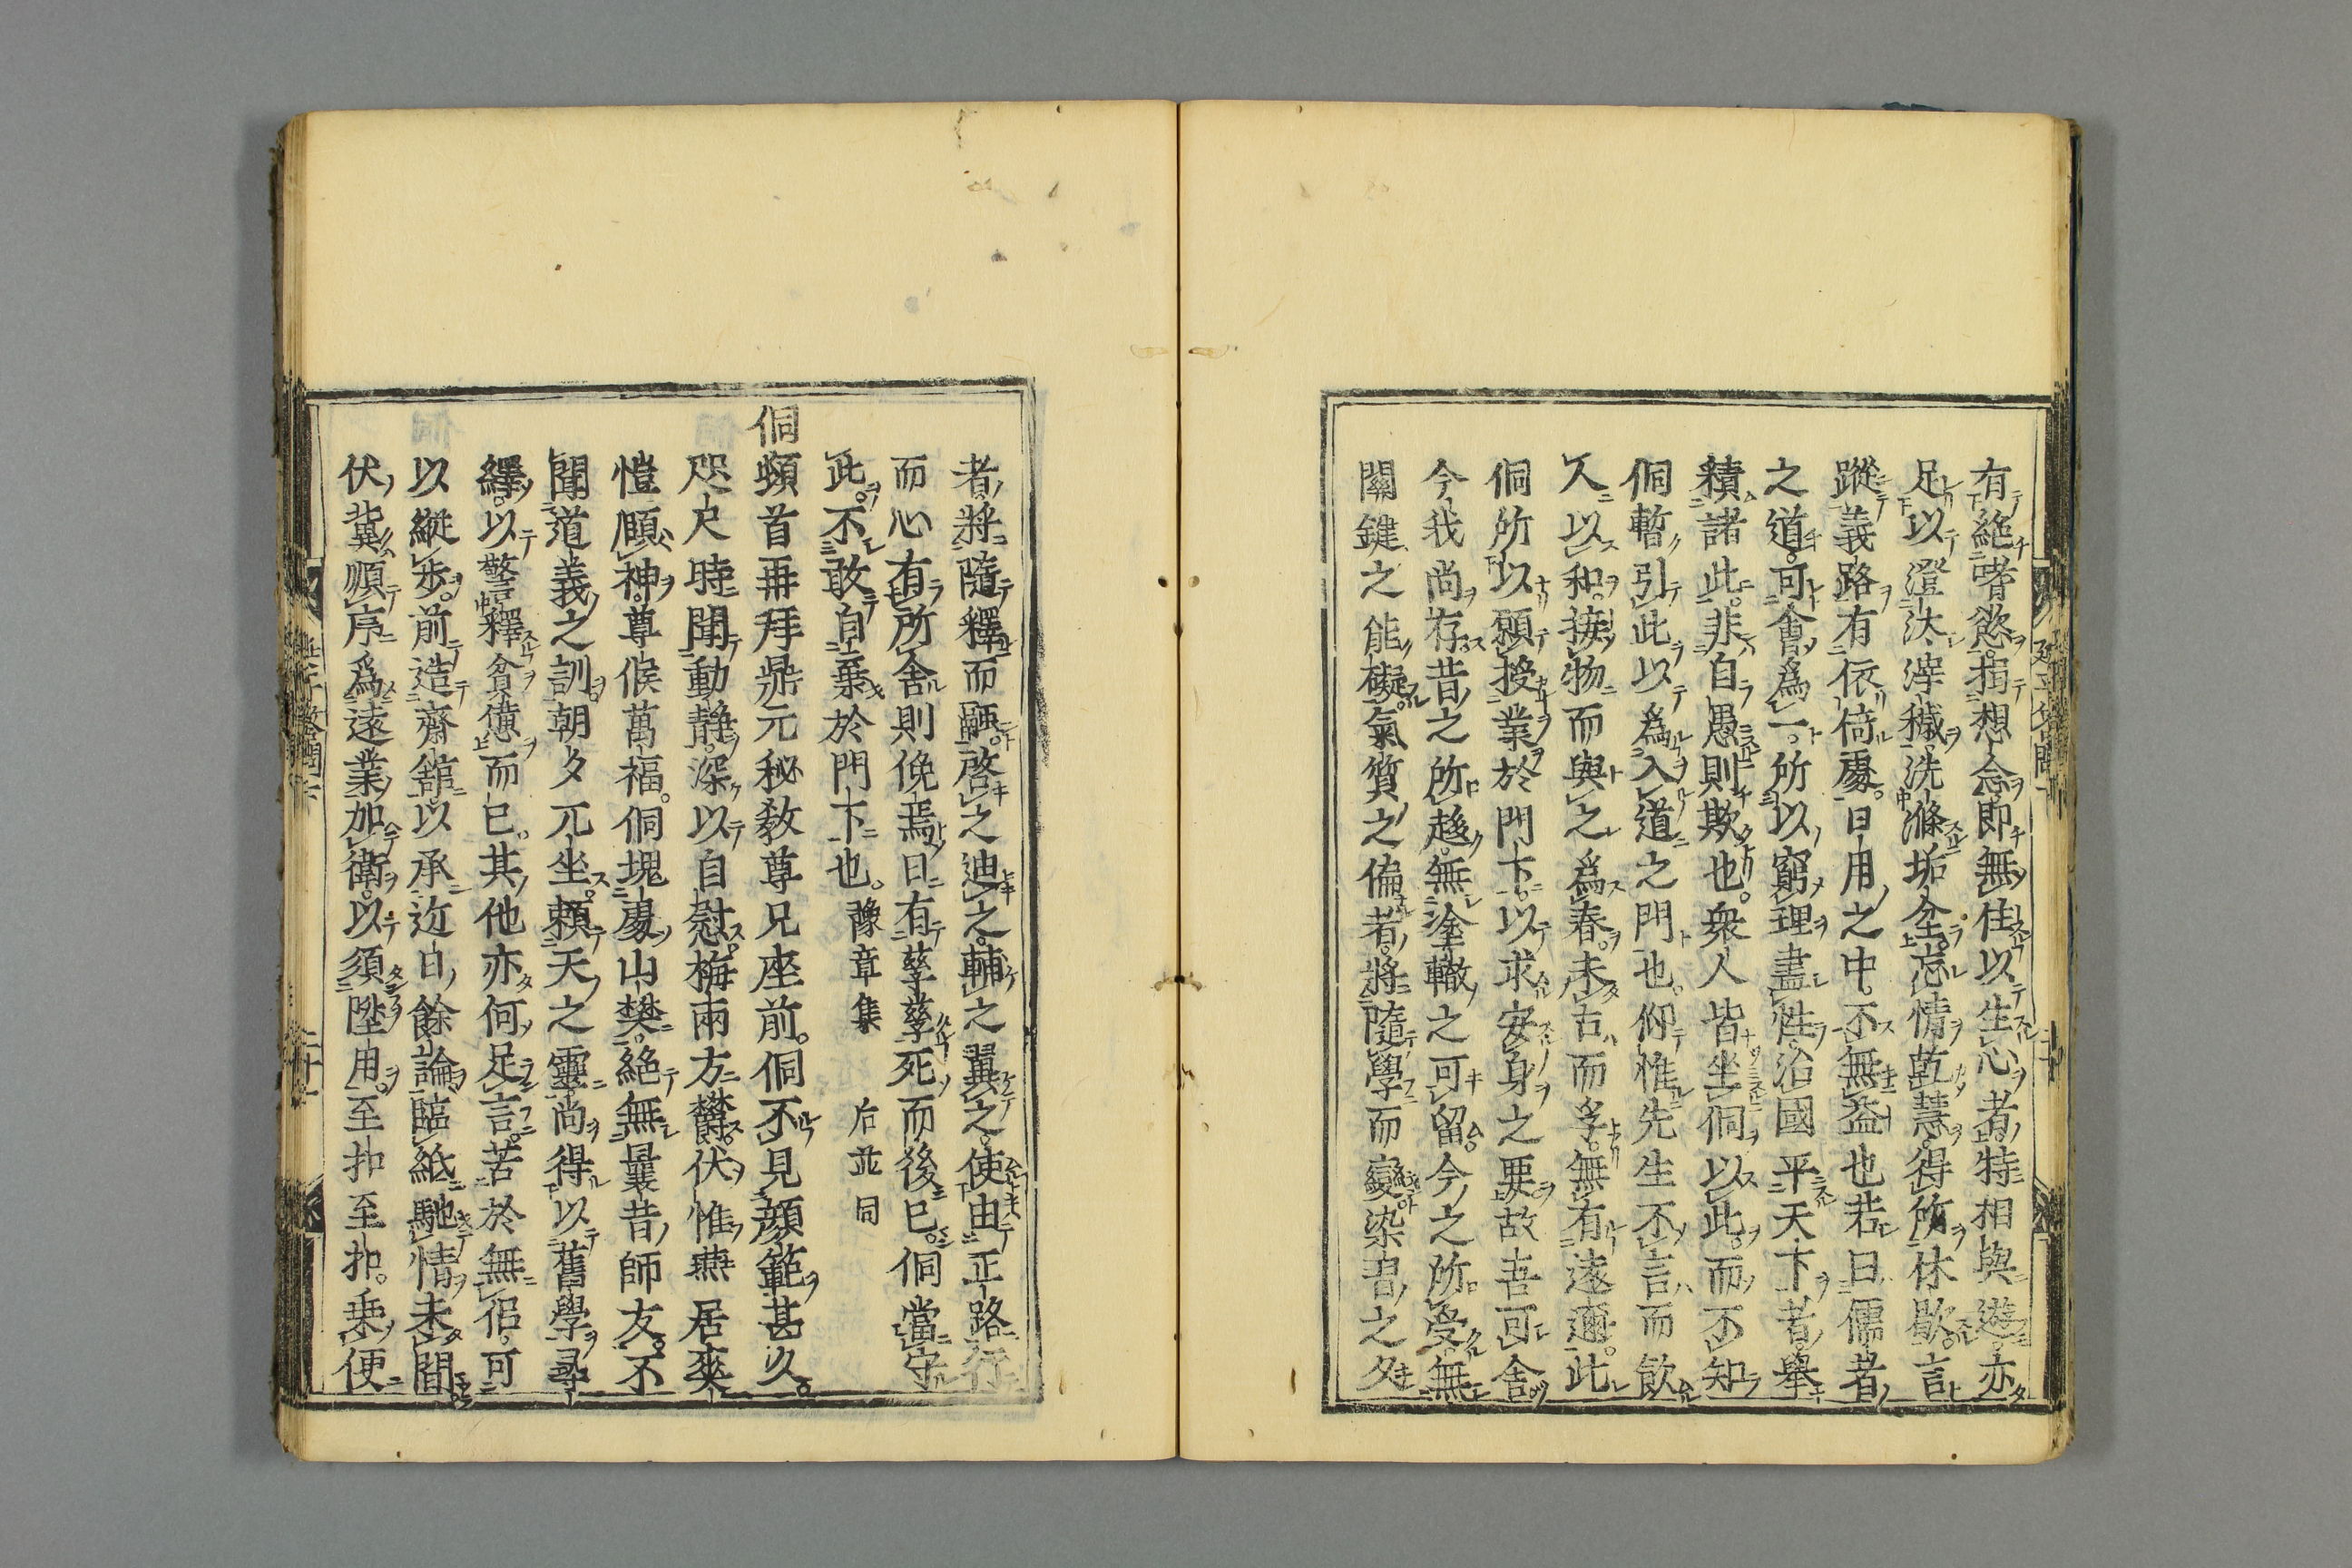 有絶嗜慾捐想念即無住以生心者特相與遊亦
足以澄汰滓穢洗滌垢坌忘情乾慧得所休歇言
蹤義路有依倚處日用之中不無益也若曰儒者
之道可會為一所以窮理盡性治國平天下者舉
積諸此非自愚則欺也衆人皆坐侗以此而不知
侗暫引此以為入道之門也仰惟先生不言而飲
人以和接物而與之為春未占而孚無有遠邇此
侗所以願授業於門下以求安身之要故吾可舍
今我尚存昔之所趍無塗轍之可留今之所受無
關鍵之能礙氣質之偏者將隨學而變染習之久
者將隨釋而融啓之迪之輔之翼之使由正路行
而心有所舍則俛焉日有孳孳死而後已侗當守
此不敢自棄於門下也 豫章集 后並同
侗頓首再拜鼎元秘教尊兄座前侗不見顏範甚久
咫尺時聞動静深以自慰梅雨方欝伏惟燕居爽
愷頤神尊候萬福侗塊處山樊絶無曩昔師友不
聞道義之訓朝夕兀坐頼天之靈尚得以舊學尋
繹以警釋貧憊而已其他亦何足言苦於無侶可
以縱歩前造齋舘以承近日餘論臨紙馳情未間
伏冀順序為遠業加衛以須陞用至扣至扣乗便